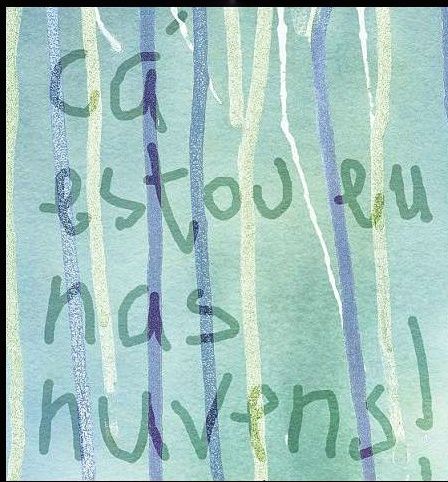 cá
estou eu
nas
nuvens!